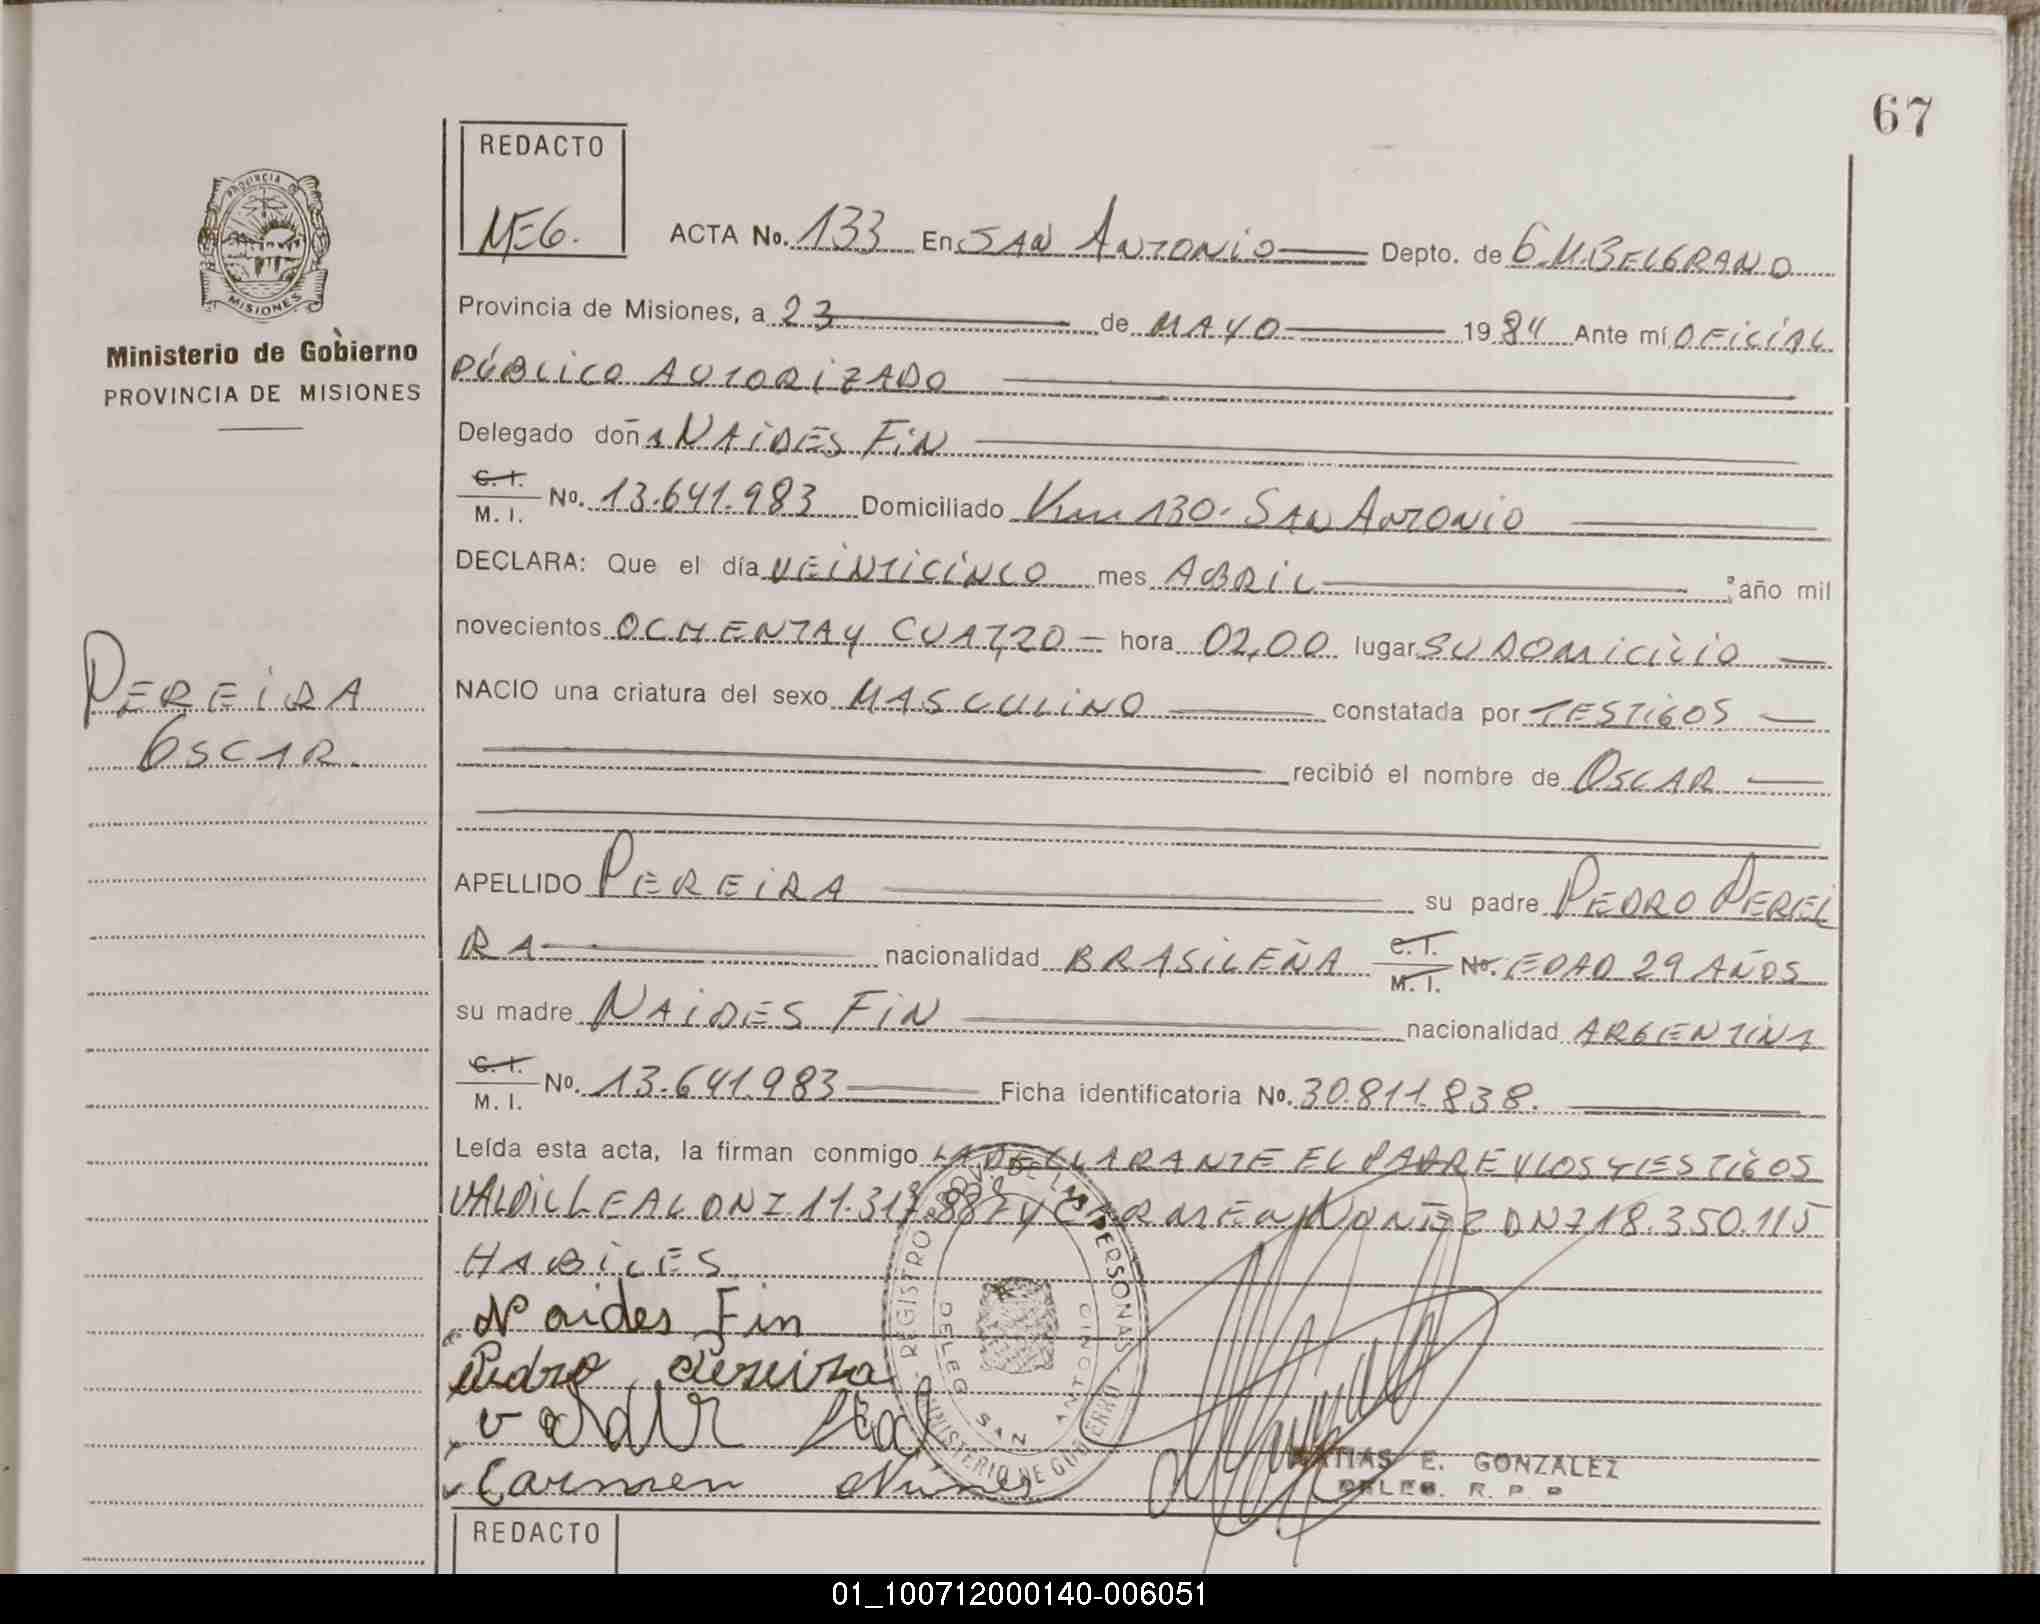 67
REDACTO
MEG.
PROVINCIA DE
MISIONES
Ministerio de Gobierno
PROVINCIA DE MISIONES
PEREIRA
OSCAR.
ACTA No. 133 En SAN ANTONIO Depto. de G.M.BELGRANO
Provincia de Misiones, a 23 de MAYO 1984 Ante mí OFICIAL
PÚBLICO AUTORIZADO
Delegado doña NAIDES FIN
C. I.
M. I. No. 13.641.983 Domiciliado Km 130 - SAN ANTONIO
DECLARA: Que el día VEINTICINCO mes ABRIL año mil
novecientos OCHENTA Y CUATRO hora 02,00 lugar SU DOMICILIO
NACIO una criatura del sexo MASCULINO constatada por TESTIGOS
recibió el nombre de OSCAR
APELLIDO PEREIRA su padre PEDRO PEREI
RA nacionalidad BRASILEÑA C. I. M. I. No. EDAD 29 AÑOS
su madre NAIDES FIN nacionalidad ARGENTINA
C. I.
M. I. No. 13.641.983 Ficha identificatoria No. 30.811.838.
Leída esta acta, la firman conmigo LA DECLARANTE EL PADRE Y LOS TESTIGOS
VALDIL LEAL DNI 11.317.887 Y CARMEN NUÑEZ DNI 18.350.115
HABILES
Naides Fin
Pedro Pereira
valdir Leal
Carmen Nunes
REGISTRO PROV. DE LAS PERSONAS
MINISTERIO DE GOBIERNO
DELEG. SAN ANTONIO
MATIAS E. GONZALEZ
DELEG. R. P. P.
REDACTO
01_100712000140-006051